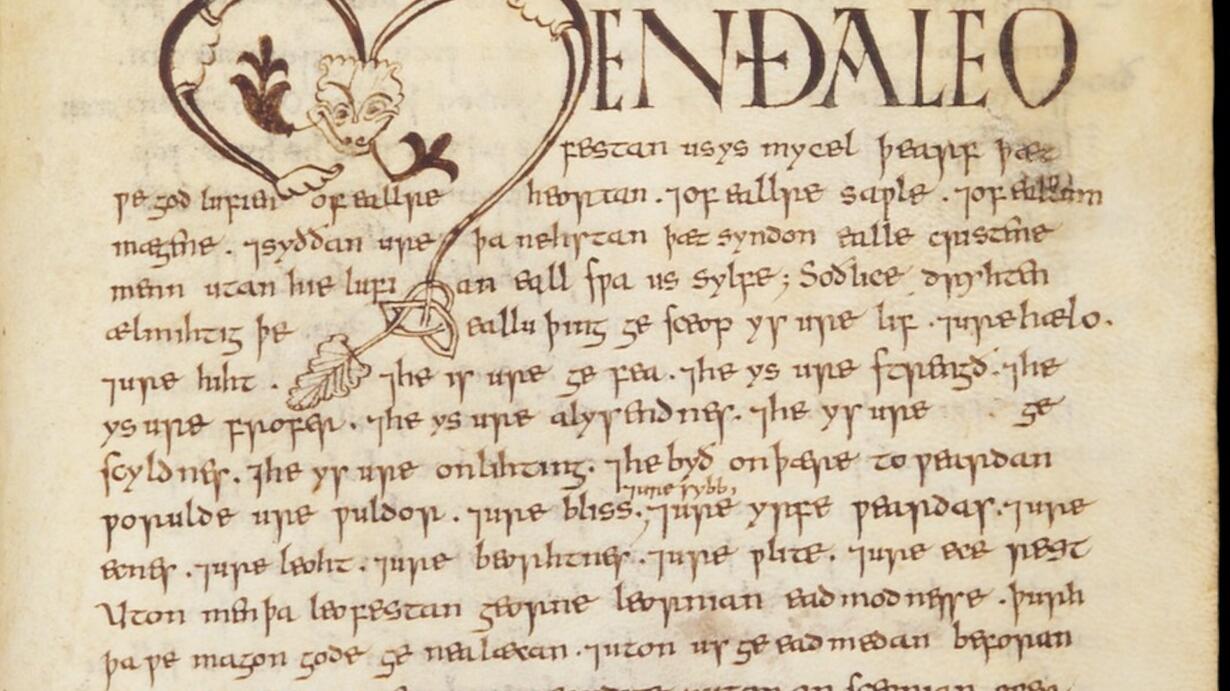 MENÐALEO
festan us ys mycel þearf þæt
ƿe god lufien of eallre heortan . ⁊ of eallre saƿle . ⁊ of eallum
mægene . ⁊ syððan ure þa nehstan þæt syndon ealle cristene
menn utan hie lufian eall sƿa us sylfe ; Soðlice dryhten
ælmihtig þe eallu þing ge sceop ys ure lif . ⁊ ure hælo .
⁊ ure hiht . ⁊ he is ure ge fea . ⁊ he ys ure strengð . ⁊ he
ys ure frofer . ⁊ he ys ure alysendnes . ⁊ he ys ure ge
scyldnes . ⁊ he ys ure onlihting . ⁊ he byð on þære to ƿeardan
⁊ ure sybb ,
ƿorulde ure ƿuldor . ⁊ ure bliss . ⁊ ure yrfe ƿeardas . ⁊ ure
ecnes . ⁊ ure leoht . ⁊ ure beorhtnes . ⁊ ure ƿlite . ⁊ ure ece rest
Uton men þa leofestan georne leornian eadmodnesse . þurh
þa ƿe magon gode ge nealæcan . ⁊ uton us ge eadmedan beforan